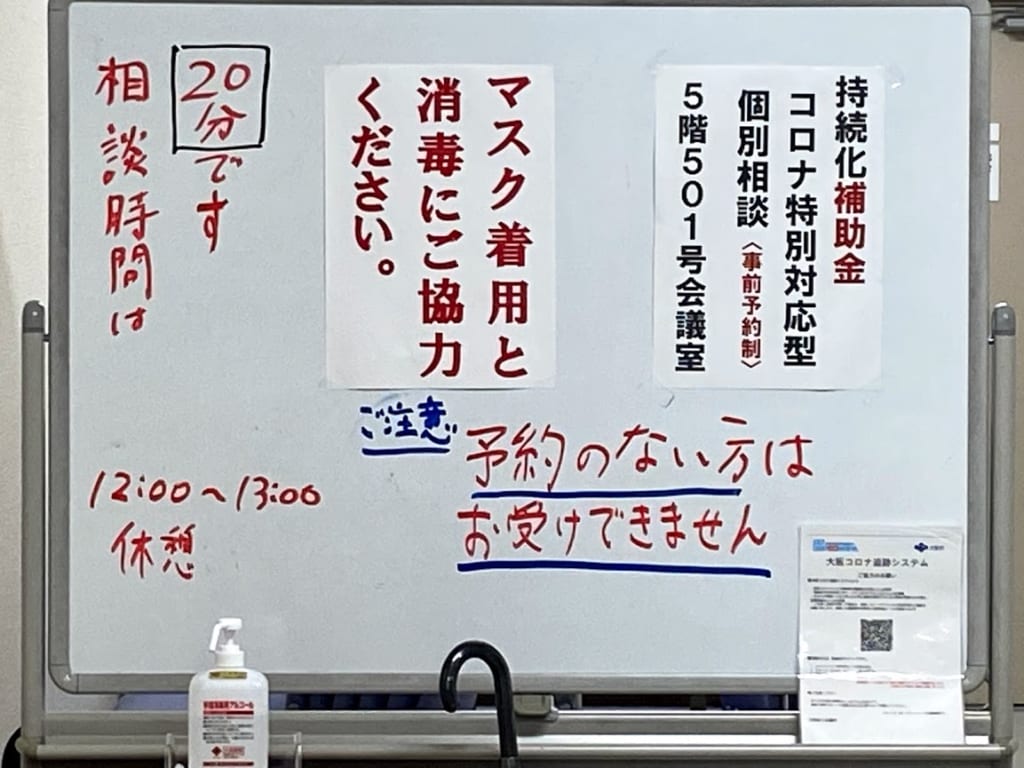 持続化補助金
コロナ特別対応型
個別相談〈事前予約制〉
5階501号会議室
マスク着用と
消毒にご協力
ください。
相談時間は
20分です
ご注意
予約のない方は
お受けできません
12:00～13:00
休憩
大阪コロナ追跡システム
ご協力のお願い